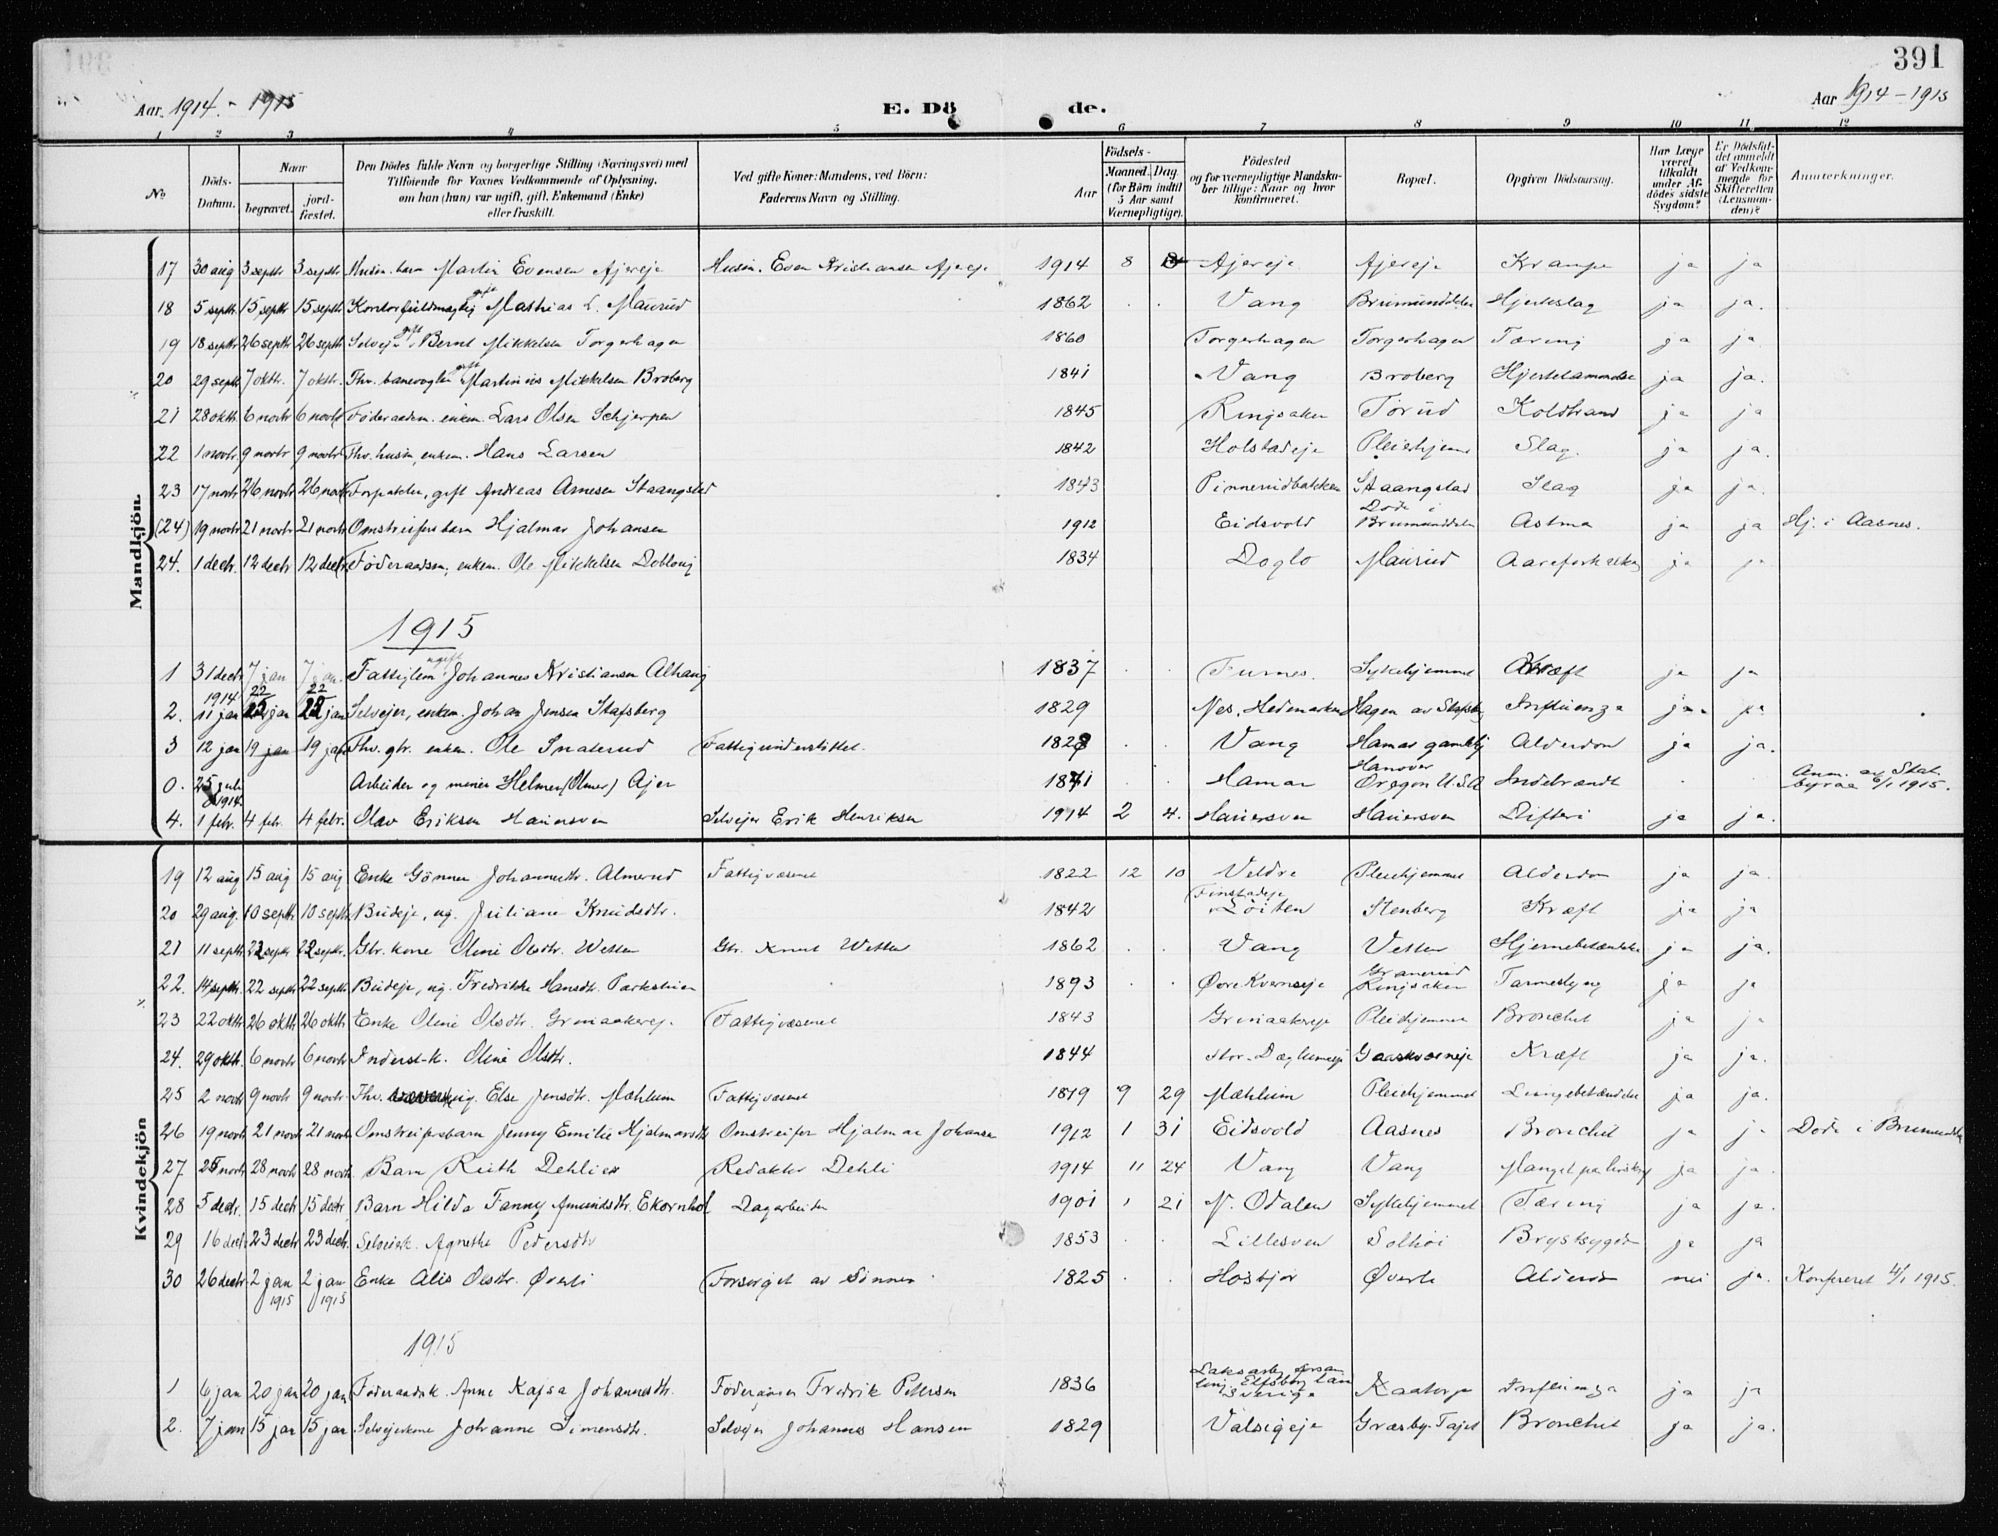 391
Aar 1914 - 1915
E. Dö de.
Aar 1914 - 1915
1 2 3 4 5 6 7 8 9 10 11 12
No. Döds-Datum. Naar begravet. jordfæstet. Den Dödes fulde Navn og borgerlige Stilling (Næringsvei) med Tilföiende for Voxnes Vedkommende af Oplysning, om han (hun) var ugift, gift, Enkemand (Enke) eller fraskilt. Ved gifte Koner: Mandens, ved Börn: Faderens Navn og Stilling. Födsels- Aar Maaned. Dag. (for Börn indtil 5 Aar samt Værnepligtige). Födested og for værnepligtige Mandskaber tillige: Naar og hvor konfirmeret. Bopæl. Opgiven Dödsaarsag. Har Læge været tilkaldt under Afdödes sidste Sygdom? Er Dödsfaldet anmeldt af Vedkommende for Skifteretten (Lensmanden)? Anmærkninger.
Mandkjön.
17 30 aug 3 septr 3 septr Husm. barn Martin Evensen Ajereje Husm. Even Kristiansen Ajereje 1914 8 Ajereje Ajereje Krampe ja ja
18 5 septr 15 septr 15 septr Kontorfuldmægtig gift Mathias L. Maurud 1862 . . Vang Brumunddalen Hjerteslag ja ja.
19 18 septr 26 septr 26 septr Selvejer gift Bernt Mikkelsen Torgerhagen 1860 Torgerhagen Torgerhagen Tæring ja ja.
20 29 septr 7 oktr. 7 oktr. Fhv. banevogter gift Martinius Mikkelsen Broberg 1841 Vang Broberg Hjertelammelse ja ja.
21 28 oktr 6 novbr 6 novbr Föderaadsm. enkem. Lars Olsen Schjerpen 1845 Ringsaker Torud Koldbrand ja ja
22 1 novbr. 9 novbr 9 novbr Fhv. husm, enkem. Hans Larsen 1842 Holstadeje Pleiehjem Slag. ja ja.
23 17 novbr 26 novbr 26 novbr Forpakter, gift Andreas Arnesen Staangstad 1843 Pinnerudbakken Staangstad Slag ja ja.
(24) 19 novbr 21 novbr 21 novbr Omstreiferbarn Hjalmar Johansen 1912 Eidsvold Död i Brumunddalen Astma ja ja Hj. i Aasnes.
24. 1 decbr. 12 decbr 12 decbr Föderaadsm, enkem. Ole Mikkelsen Doblong 1834 Doglo Maurud Aareforkalkn ja ja
1915
1 31 decbr 1914 7 jan 7 jan. Fattiglem ugift Johannes Kristiansen Alhaug 1837 . . Furnes. Sykehjemmet Kræft ja ja
2. 11 jan 22 jan 22 jan Selvejer, enkem. Johan Jensen Stafsberg 1829 Nes, Hedemarken Hagen av Stafsbg Influenza ja ja
3 12 jan 19 jan 19 jan Fhv. gbr. enkem. Ole Snaterud Fattigunderstöttet. 1828 . . Vang Hamar gamlehj Alderdom ja ja.
0. 25 juli 1914. Arbeider og miner Helmer (Olmer) Ajer 1871 Hamar Hanover Oregon U.S.A Indebrændt . . Anm. av Stat. byraa 6/1 1915.
4. 1 febr. 4 febr. 4 febr. Olav Eriksen Hauersven Selvejer Erik Henriksen 1914 2 4. Hauersven Hauersven Difteri ja ja.
Kvindekjön
19 12 aug 15 aug 15 aug Enke Gönner Johannesdtr. Almerud Fattigvæsenet 1822 12 10 Veldre Pleiehjemmet Alderdom ja ja.
20 29 aug. 10 septr 10 septr Budeje, ug. Juliane Knudsdtr. 1842 Finstadeje Löiten Stenberg Kræft ja ja
21 11 septr 22 septr 22 septr. Gbr. kone Oline Olsdtr. Wetten Gbr. Knut Wetten 1862 . . Vang Vetten Hjernebetændelse ja ja.
22. 14 septr. 22 septr 22 septr Budeje, ug. Fredrikke Hansdtr. 1893 . . Övre Kvernseje Granerud Ringsaker Tarmeslyng ja ja
23 22 oktr 26 oktr 26 oktr. Enke Oline Olsdtr. Grinaakereje. Fattigvæsenet 1843 Grinaakereje Pleiehjemmet Bronchit ja ja
24. 29 oktr. 6 novbr 6 novbr Inderst-k. Oline Olsdtr. 1844 Kræft ja ja.
25 2 novbr 9 novbr 9 novbr Fhv. ug. Else Jensdtr. Mæhlum Fattigvæsenet 1819 9 29 Mæhlum Pleiehjemmet Lungebetændelse ja ja.
26 19 novbr 21 novbr 21 novbr. Omstreifersbarn Jenny Emilie Hjalmarsdtr Omstreifer Hjalmar Johansen 1912 1 31 Eidsvold Aasnes Bronchit ja ja Döde i Brumunddn
27 25 novbr 28 novbr 28 novbr Barn Ruth Dehlien Redaktör Dehli 1914 11 24 Vang Vang Mangel paa livskraft ja ja.
28 5 decbr. 15 decbr 15 decbr. Barn Hilda Fanny Amundsdtr. Ekornhol Dagarbeider 1901 1 21 N. Odalen Sykehjemmet Tæring ja ja.
29 16 decbr 23 decbr 23 decbr. Selveierk. Agnethe Pedersdtr 1853 . . Lillesven Solhöi Brystsygdom ja ja
30 26 decbr 2 jan 1915 2 jan 1915 Enke Alis Olsdtr. Överli Forsörget av Sönnen 1825 . . Hosbjör Överli Alderdom nei ja. Konfereret 4/1 1915.
1915
1 6 jan 20 jan 20 jan Föderaadsk. Anne Kajsa Johannesdtr. Föderaadsm Fredrik Petersen 1836 Laksarby forsamling, Elfsborg Län Sverige Kaatorp Influenza ja ja
2. 7 jan 15 jan 15 jan. Selvejerkone Johanne Simensdtr. Selvejer Johannes Hansen 1829 Valsigeje Græsby-Tajet Bronchit ja ja.